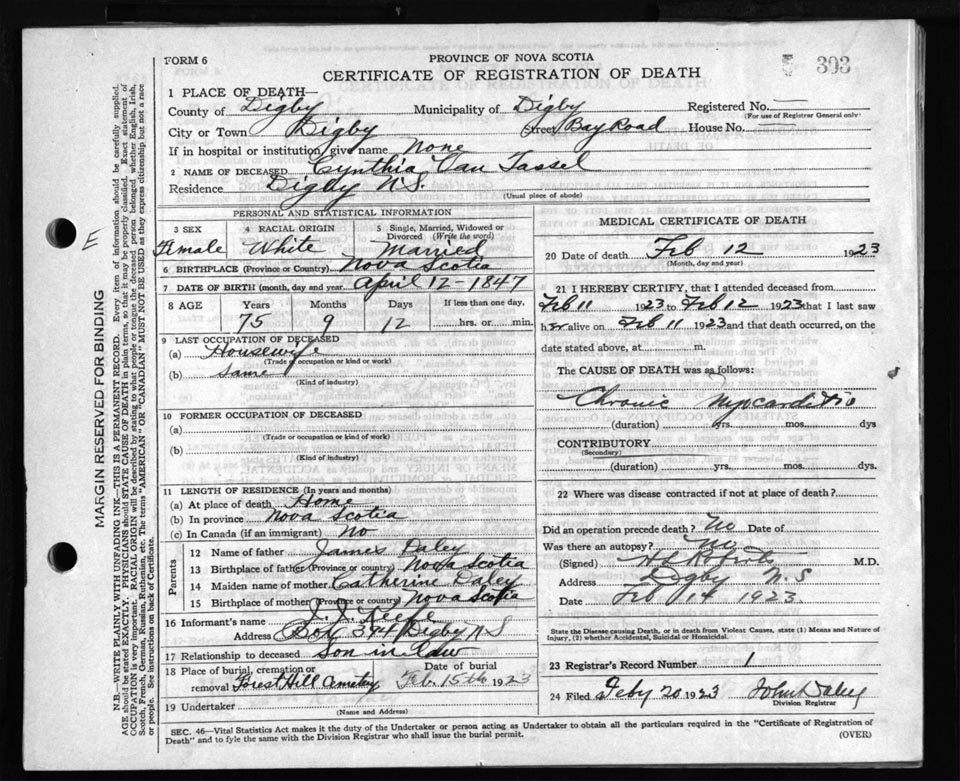 FORM 6
PROVINCE OF NOVA SCOTIA
CERTIFICATE OF REGISTRATION OF DEATH
303
1 PLACE OF DEATH—
County of Digby Municipality of Digby Registered No. —
(For use of Registrar General only)
City or Town Digby Street Bay Road House No. —
If in hospital or institution, give name None
2 NAME OF DECEASED Cynthia Van Tassel
Residence Digby N.S.
(Usual place of abode)
PERSONAL AND STATISTICAL INFORMATION
3 SEX 4 RACIAL ORIGIN 5 Single, Married, Widowed or Divorced (Write the word)
Female White Married
6 BIRTHPLACE (Province or Country) Nova Scotia
7 DATE OF BIRTH (month, day and year) April 12 - 1847
8 AGE Years Months Days If less than one day,
75 9 12 hrs. or min.
9 LAST OCCUPATION OF DECEASED
(a) Housewife
(Trade or occupation or kind of work)
(b) Same
(Kind of industry)
10 FORMER OCCUPATION OF DECEASED
(a)
(Trade or occupation or kind of work)
(b)
(Kind of industry)
11 LENGTH OF RESIDENCE (In years and months)
(a) At place of death Home
(b) In province Nova Scotia
(c) In Canada (if an immigrant) No
Parents
12 Name of father James Daley
13 Birthplace of father (Province or country) Nova Scotia
14 Maiden name of mother Catherine Daley
15 Birthplace of mother (Province or country) Nova Scotia
16 Informant's name
Address Box 394 Digby N S
17 Relationship to deceased Son in law
18 Place of burial, cremation or removal Forest Hill Cemetery Date of burial Feb. 15th 1923
19 Undertaker
(Name and Address)
MEDICAL CERTIFICATE OF DEATH
20 Date of death Feb 12 1923
(Month, day and year)
21 I HEREBY CERTIFY, that I attended deceased from
Feb 11 1923 to Feb 12 1923 that I last saw
her alive on Feb 11 1923 and that death occurred, on the
date stated above, at m.
The CAUSE OF DEATH was as follows:
Chronic Myocarditis
(duration) yrs. mos. dys
CONTRIBUTORY
(Secondary)
(duration) yrs. mos. dys.
22 Where was disease contracted if not at place of death?
Did an operation precede death? No Date of
Was there an autopsy? No
(Signed) M.D.
Address Digby N.S
Date Feb 14 1923
State the Disease causing Death, or in death from Violent Causes, state (1) Means and Nature of
Injury, (2) whether Accidental, Suicidal or Homicidal.
23 Registrar's Record Number 1
24 Filed Feby 20 1923 John Daley
Division Registrar
SEC. 46—Vital Statistics Act makes it the duty of the Undertaker or person acting as Undertaker to obtain all the particulars required in the "Certificate of Registration of
Death" and to fyle the same with the Division Registrar who shall issue the burial permit. (OVER)
MARGIN RESERVED FOR BINDING
E
N.B.—WRITE PLAINLY WITH UNFADING INK—THIS IS A PERMANENT RECORD. Every item of information should be carefully supplied.
AGE should be stated EXACTLY. PHYSICIANS should STATE CAUSE OF DEATH in plain terms, so that it may be properly classified. Exact statement of
OCCUPATION is very important. RACIAL ORIGIN will be described by stating to what people or tongue the deceased person belonged whether English, Irish,
Scotch, French, German, Russian, Ruthenian, etc. The terms "AMERICAN" OR "CANADIAN" MUST NOT BE USED as they express citizenship but not a race
or people. See instructions on back of Certificate.